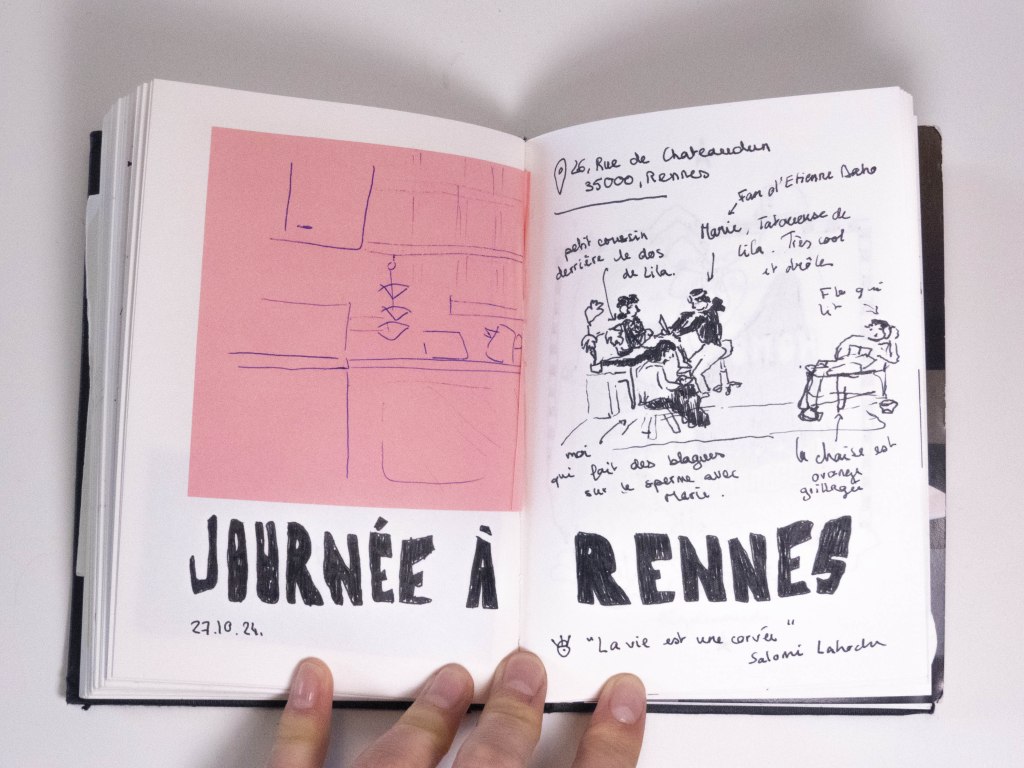 JOURNÉE À
27.10.24.
26, Rue de Chateaudun
35000, Rennes
Fan d'Etienne Daho
Marie, Tatoueuse de
Lila. Très cool
et drôle
petit coussin
derrière le dos
de Lila.
Flo qui
lit
moi
qui fait des blagues
sur le sperme avec
Marie.
la chaise est
orange
grillagée
RENNES
"La vie est une corvée"
Salomé